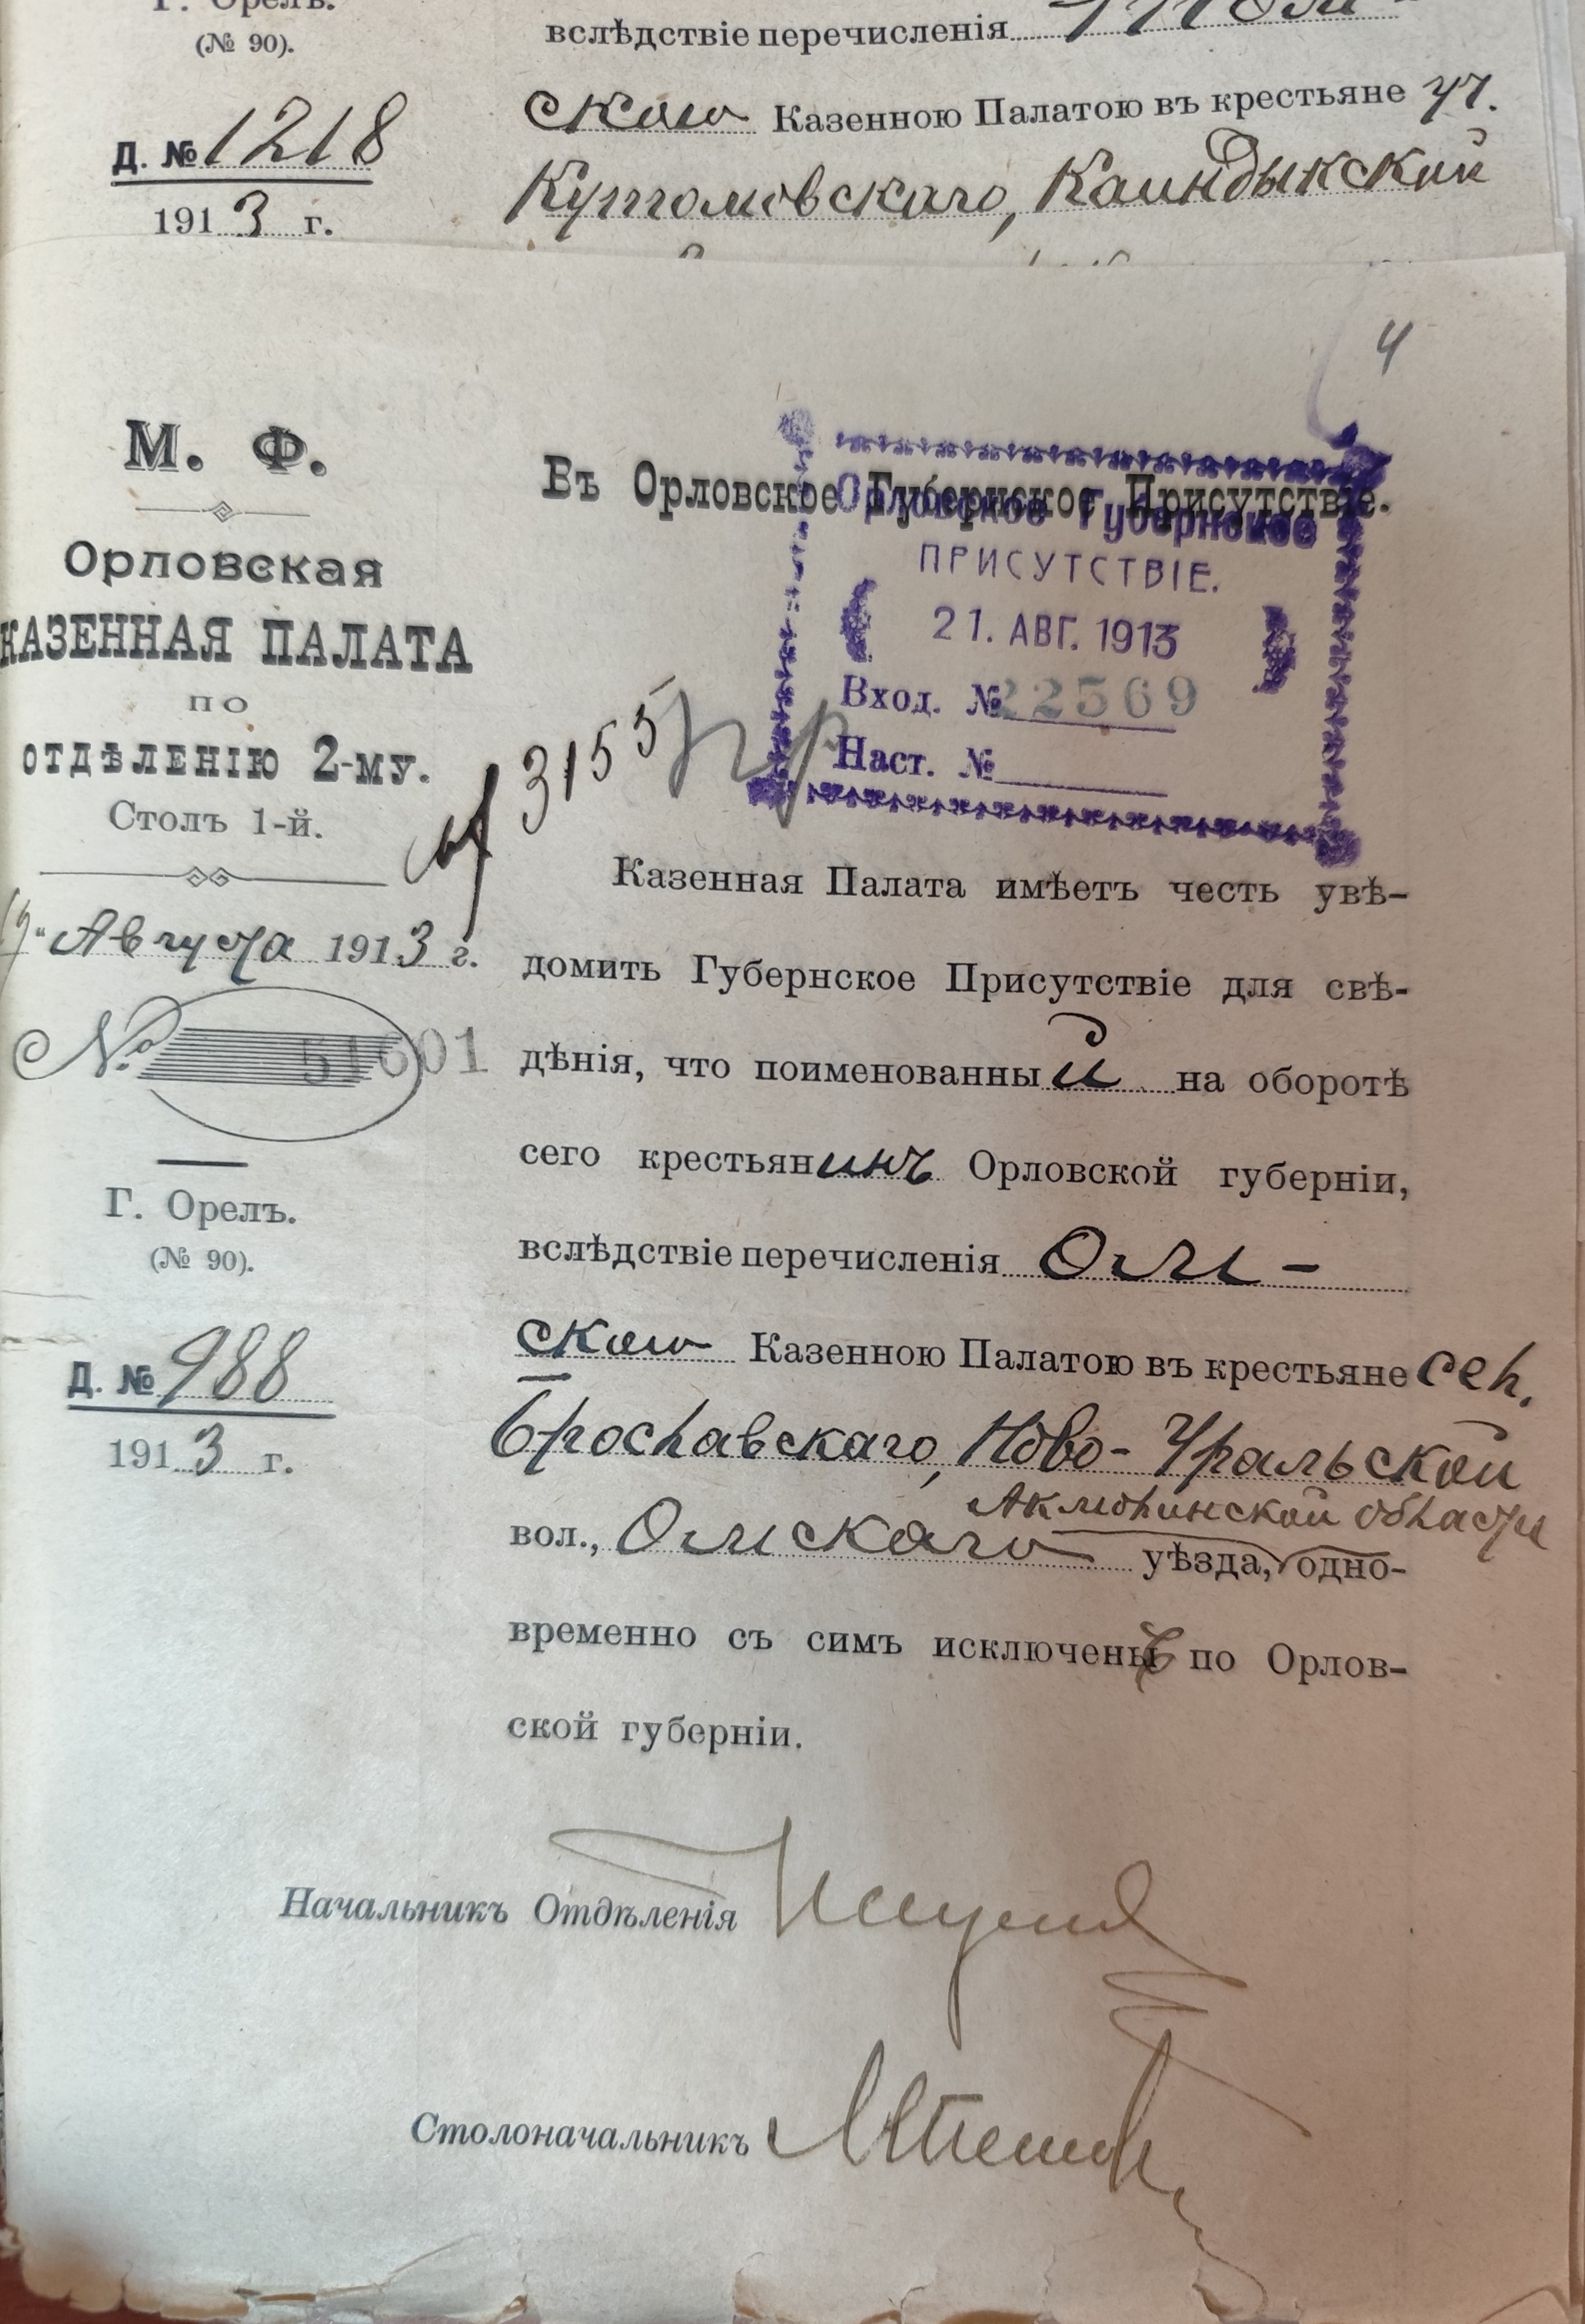 Г. Орелъ.
(№ 90).
вслѣдствіе перечисленія
скою Казенною Палатою въ крестьяне уч.
Д. № 1218
1913 г.
Каиндыкской
4
М. Ф.
Орловская
КАЗЕННАЯ ПАЛАТА
ПО
ОТДѢЛЕНІЮ 2-МУ.
Столъ 1-й.
Августа 1913 г.
№ 51601
Г. Орелъ.
(№ 90).
Д. № 988
1913 г.
Въ Орловское Губернское Присутствіе.
Орловское Губернское
ПРИСУТСТВІЕ.
21. АВГ. 1913
Вход. № 22569
Наст. №
3155
Казенная Палата имѣетъ честь увѣ-
домить Губернское Присутствіе для свѣ-
дѣнія, что поименованный на оборотѣ
сего крестьянинъ Орловской губерніи,
вслѣдствіе перечисленія Ом-
скою Казенною Палатою въ крестьяне сел.
Брославскаго, Ново-Уральской
Акмолинской области
вол., Омскаго уѣзда, одно-
временно съ симъ исключенъ по Орлов-
ской губерніи.
Начальникъ Отдѣленія
Столоначальникъ